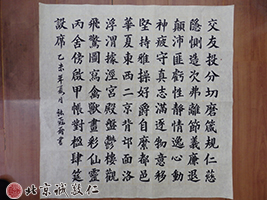 交友投分切磨箴規仁慈
隱惻造次弗離節義廉退
顛沛匪虧性靜情逸心動
神疲守真志滿逐物意移
堅持雅操好爵自縻都邑
華夏東西二京背邙面洛
浮渭據涇宮殿盤鬱樓觀
飛驚圖寫禽獸畫彩仙靈
丙舍傍啟甲帳對楹肆筵
設席 乙未年夏月 書
北京誠敬仁